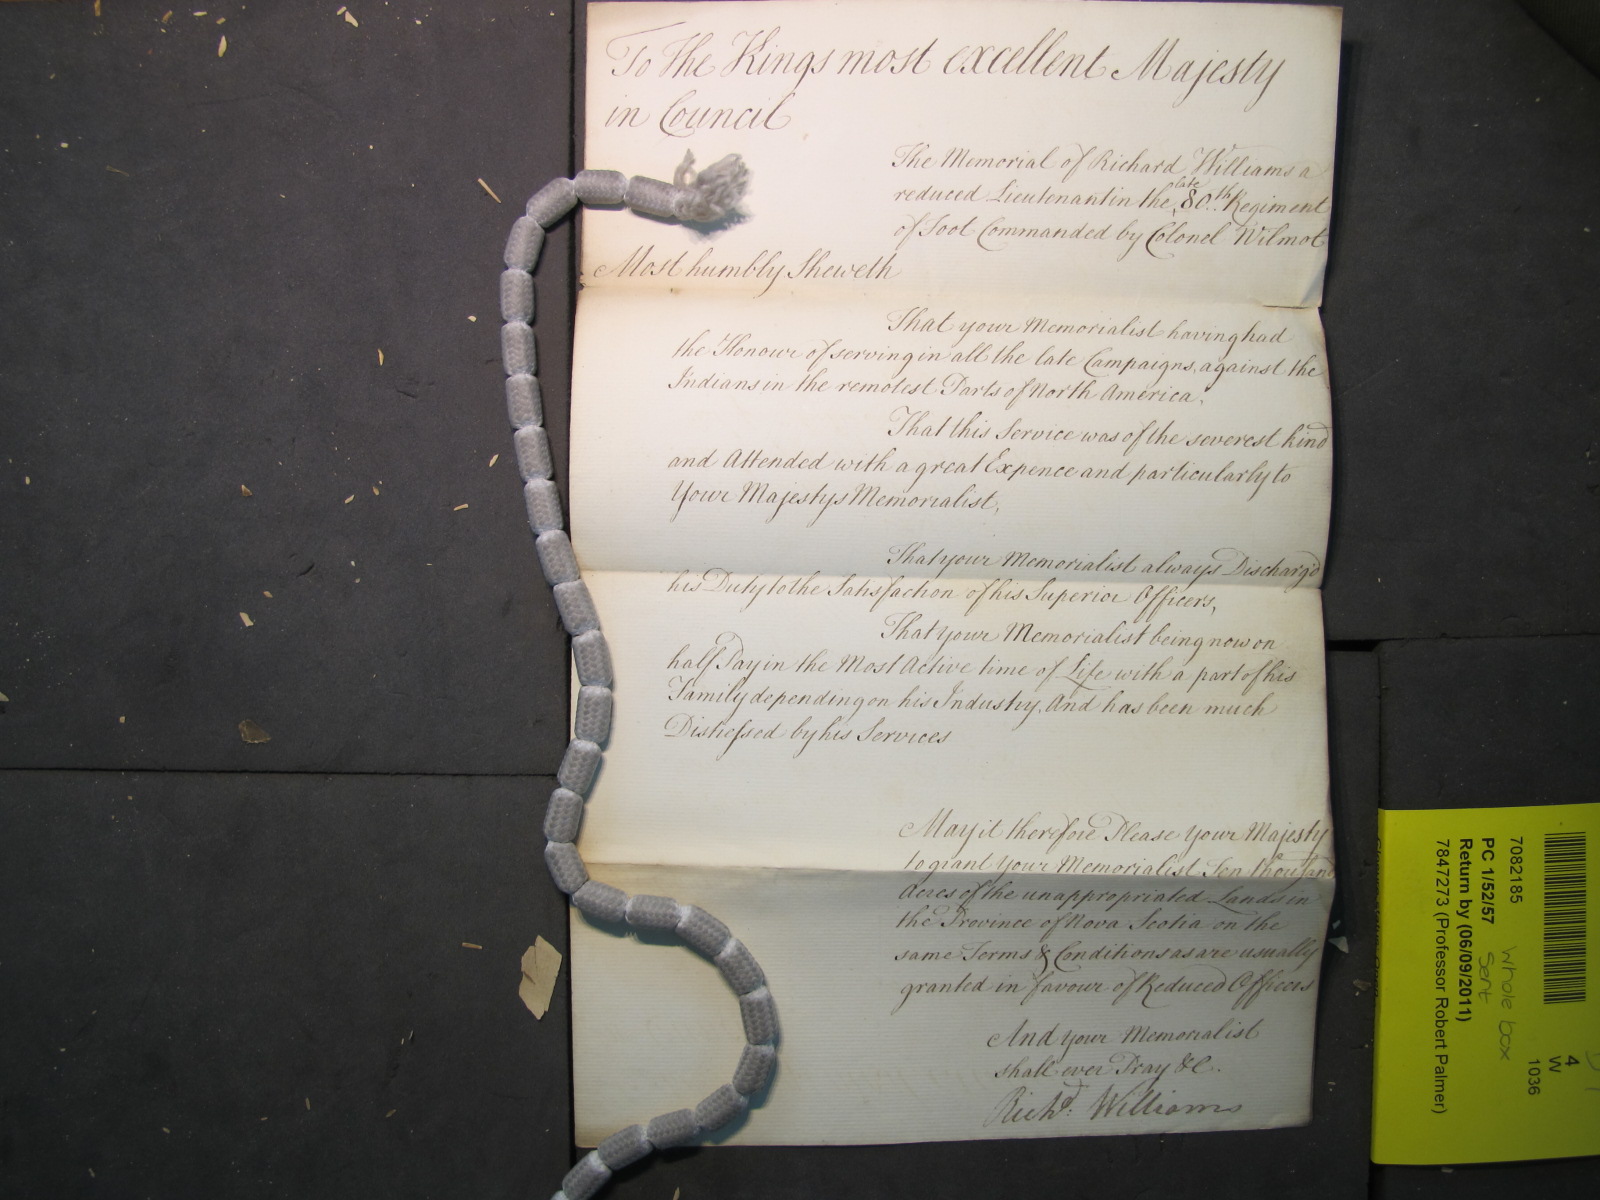 To the Kings most excellent Majesty
in Council
The Memorial of Richard Williams a
reduced Lieutenant in the late 80th Regiment
of Foot Commanded by Colonel Wilmot
Most humbly Sheweth
That your Memorialist having had
the Honour of serving in all the late Campaigns, against the
Indians in the remotest Parts of North America.
That this Service was of the severest kind
and Attended with a great Expence and particularly to
Your Majestys Memorialist,
That your Memorialist always Discharg'd
his Duty to the Satisfaction of his Superior Officers,
That your Memorialist being now on
half Pay in the Most Active time of Life with a part of his
Family depending on his Industry, And has been much
Distressed by his Services
May it therefore Please your Majesty
to grant your Memorialist Ten thousand
Acres of the unappropriated Lands in
the Province of Nova Scotia on the
same Terms & Conditions as are usually
granted in favour of Reduced Officers
And your Memorialist
shall ever Pray &c.
Richd. Williams
7082185
PC 1/52/57
Return by (06/09/2011)
7847273 (Professor Robert Palmer)
whole box
sent
4
W
1036